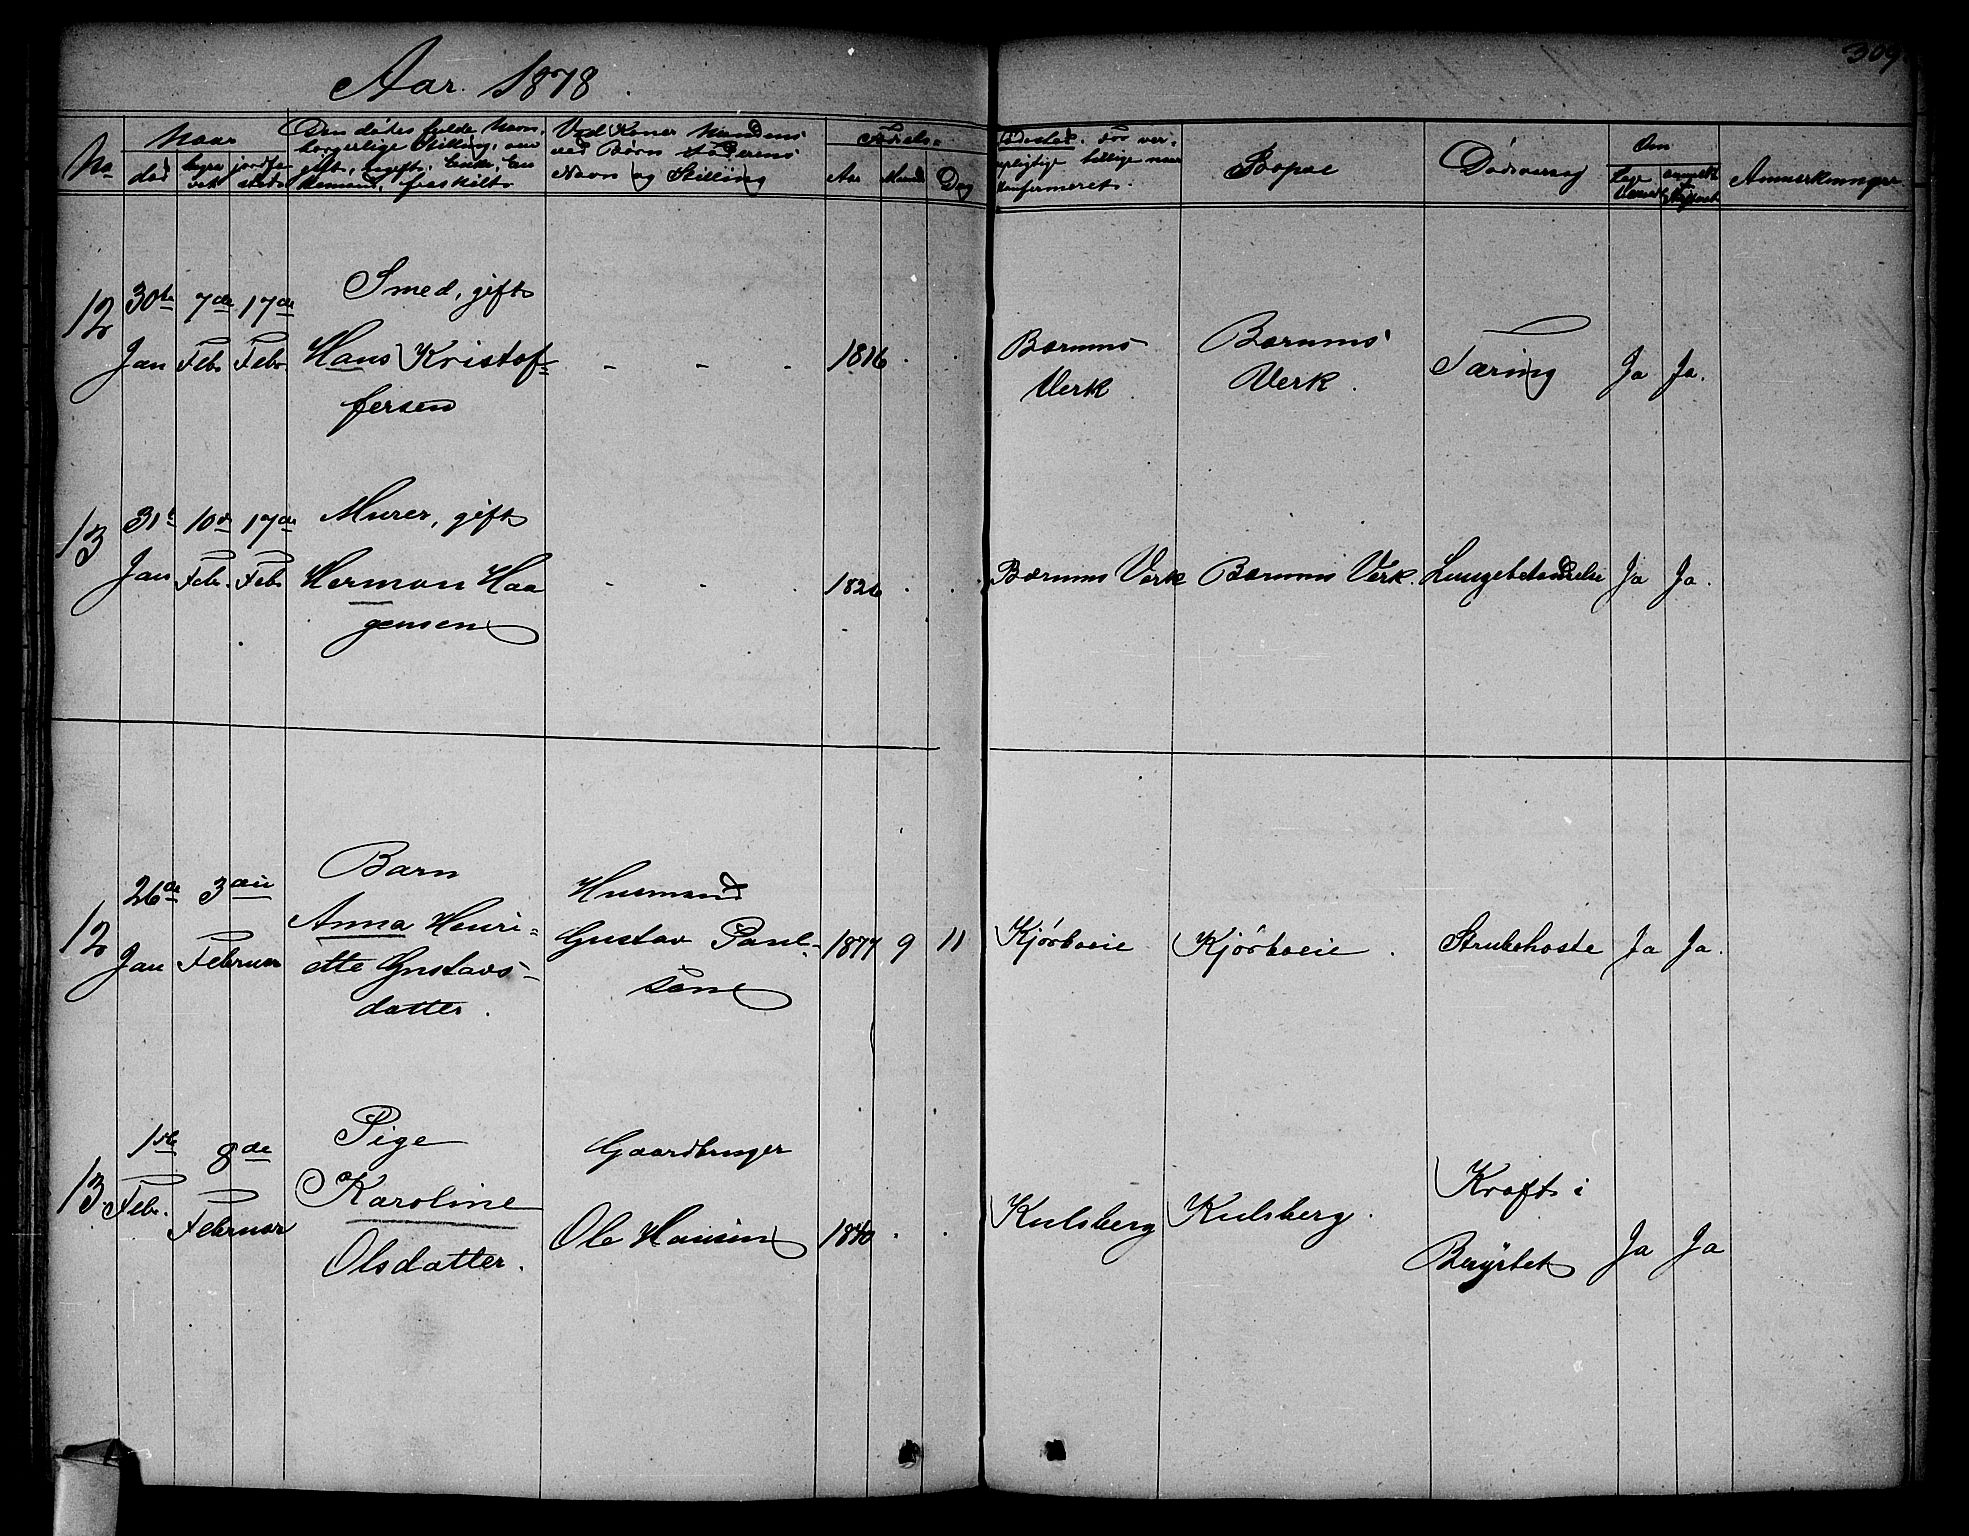 309.
Aar. 1878.
No
Naar
død
begravet
jordfæstet
Den dødes fulde Navn,
borgerlige Stilling, om
gift, ugift, Enke, En
kemand, fraskilt
Ved Koner Mandens
ved Børn Faderens
Navn og Stilling
Fødsels-
Aar
Maaned
Dag
Fødested. For ver-
pligtige tillige naar
konfirmeret.
Bopæl
Dødsaarsag
Om
Anmærkninger
12
30te
Jan
7de
Feb
17de
Feb
Smed, gift
Hans Kristof-
fersen
- - -
1816
Bærums
Verk
Bærums
Verk.
Tæring
Ja
Ja.
13
31te
Jan
10de
Feb.
17de
Feb
Murer, gift
Herman Haa
gensen
- - -
1826
Bærums Verk
Bærums Verk.
Lungebetændelse
Ja
Ja.
12
26de
Jan
3die
Februar
Barn
Anna Henri-
ette Gustavs-
datter.
Husmand
Gustav Paul-
sen
1877
9
11
Kjørboeie
Kjørboeie.
Strubehoste
Ja
Ja.
13
1ste
Febr.
8de
Februar
Pige
Karoline
Olsdatter.
Gaardbruger
Ole Hansen
1840
Kulsberg
Kulsberg.
Kræft i
Brystet
Ja
Ja